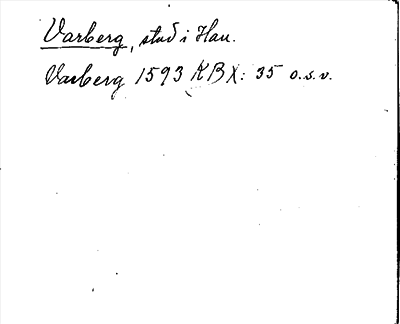 Varberg, stad i Hall.
Varberg 1593 KB X: 35 o.s.v.